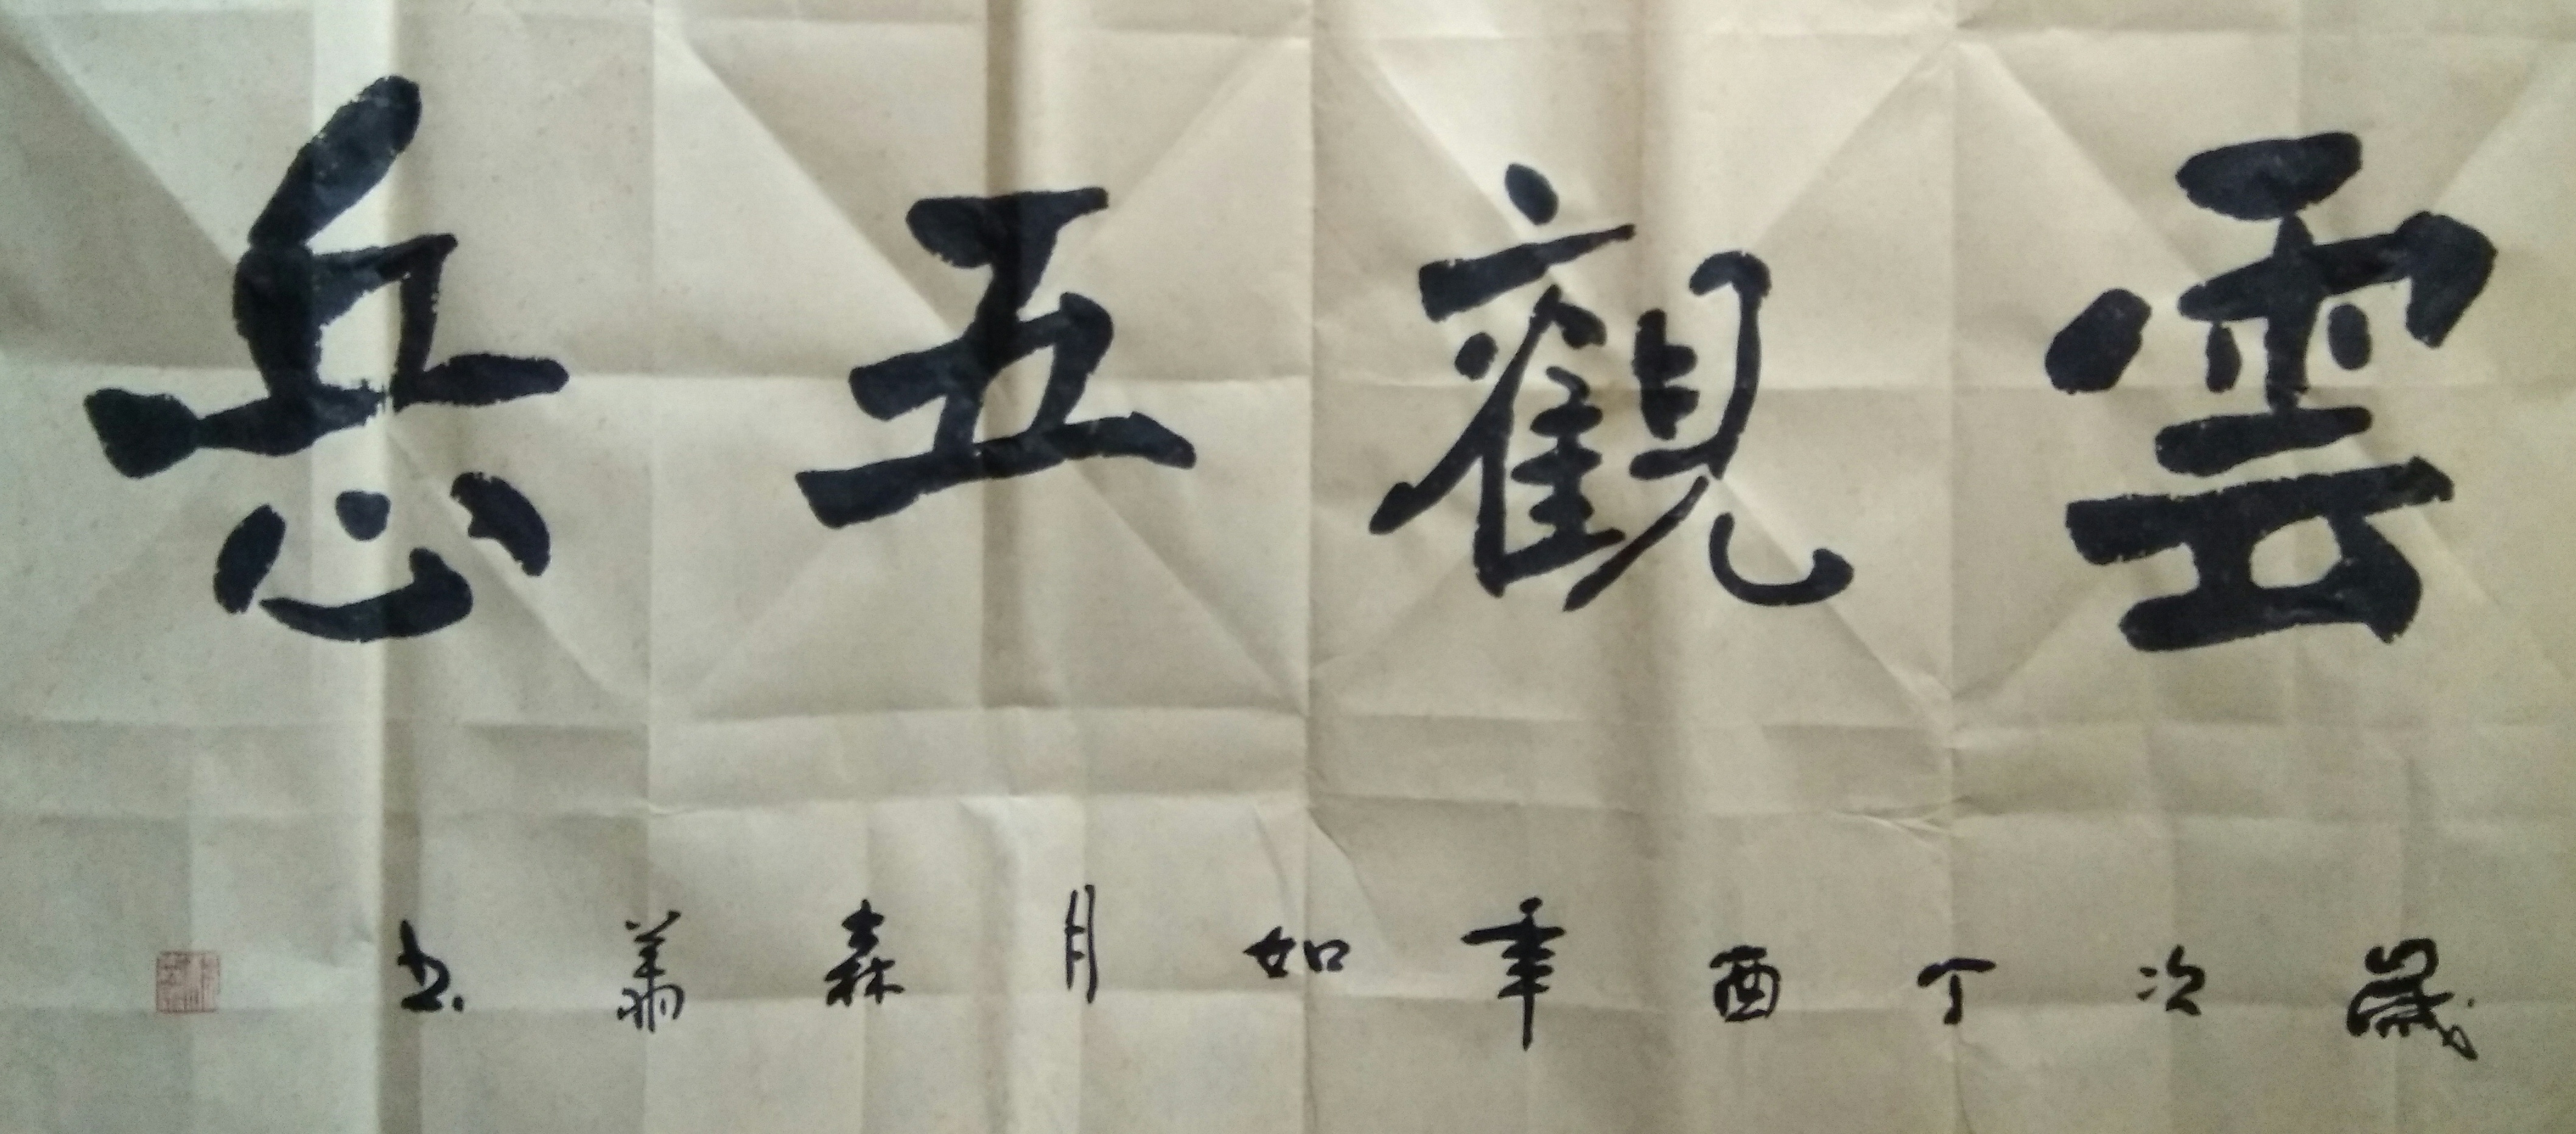 雲觀五岳
歲次丁酉年如月森书